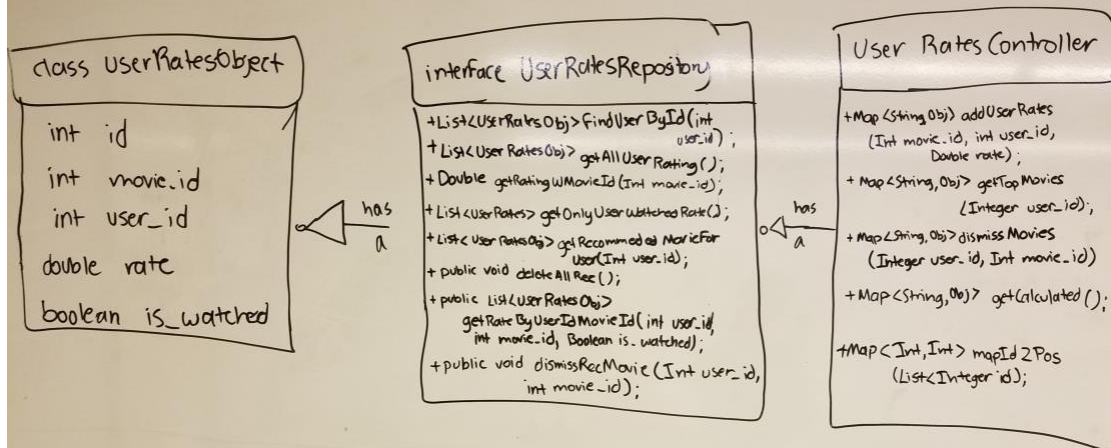 class userRatesObject
int id
int movie_id
int user_id
double rate
boolean is_watched
has
a
interface UserRatesRepository
+List<UserRatesObj> findUserById(int
user_id);
+List<UserRatesObj> getAllUserRating();
+ Double getRatingWMovieId(Int movie_id);
+List<userRates> getOnlyUserWatchedRate();
+List<UserRatesObj> getRecommeded MovieFor
User(Int user_id);
+ public void deleteAllRec();
+ public List<UserRatesObj>
getRateByUserIdMovieId(int user_id,
int movie_id, Boolean is_watched);
+ public void dismissRecMovie(Int user_id,
int movie_id);
has
a
User RatesController
+Map <String,Obj> addUserRates
(Int movie_id, int user_id,
Double rate);
+ Map<String,Obj> getTopMovies
(Integer user_id);
+Map<String,Obj> dismissMovies
(Integer user_id, Int movie_id)
+Map<String,Obj> getCalculated();
+Map<Int,Int> mapId2Pos
(List<Integer id);